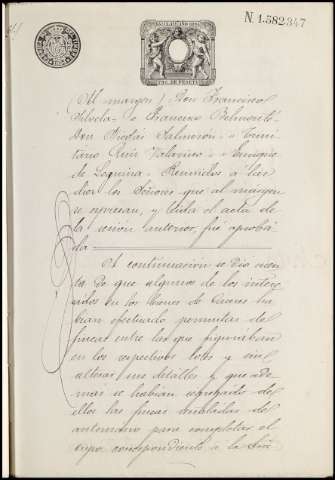 N. 1.582.347
(Al margen) Don Francisco
Silvela - Francisco Belmonte
Don Nicolás Salmerón
Ruiz - Enrique
de Leguina - Reunidos á las
diez los Señores que al margen
se expresan, y leida el acta de
la sesion anterior, fué aproba
da
A continuacion se dió cuen
ta de que algunos de los intere
sados en los bienes de
bian efectuado permutas de
fincas entre las que figuraban
en los respectivos lotes y sin
alterar sus detalles y que ade
mas se habian separado de
ellos las fincas señaladas de
antemano para completar el
cupo correspondiente á la Sra